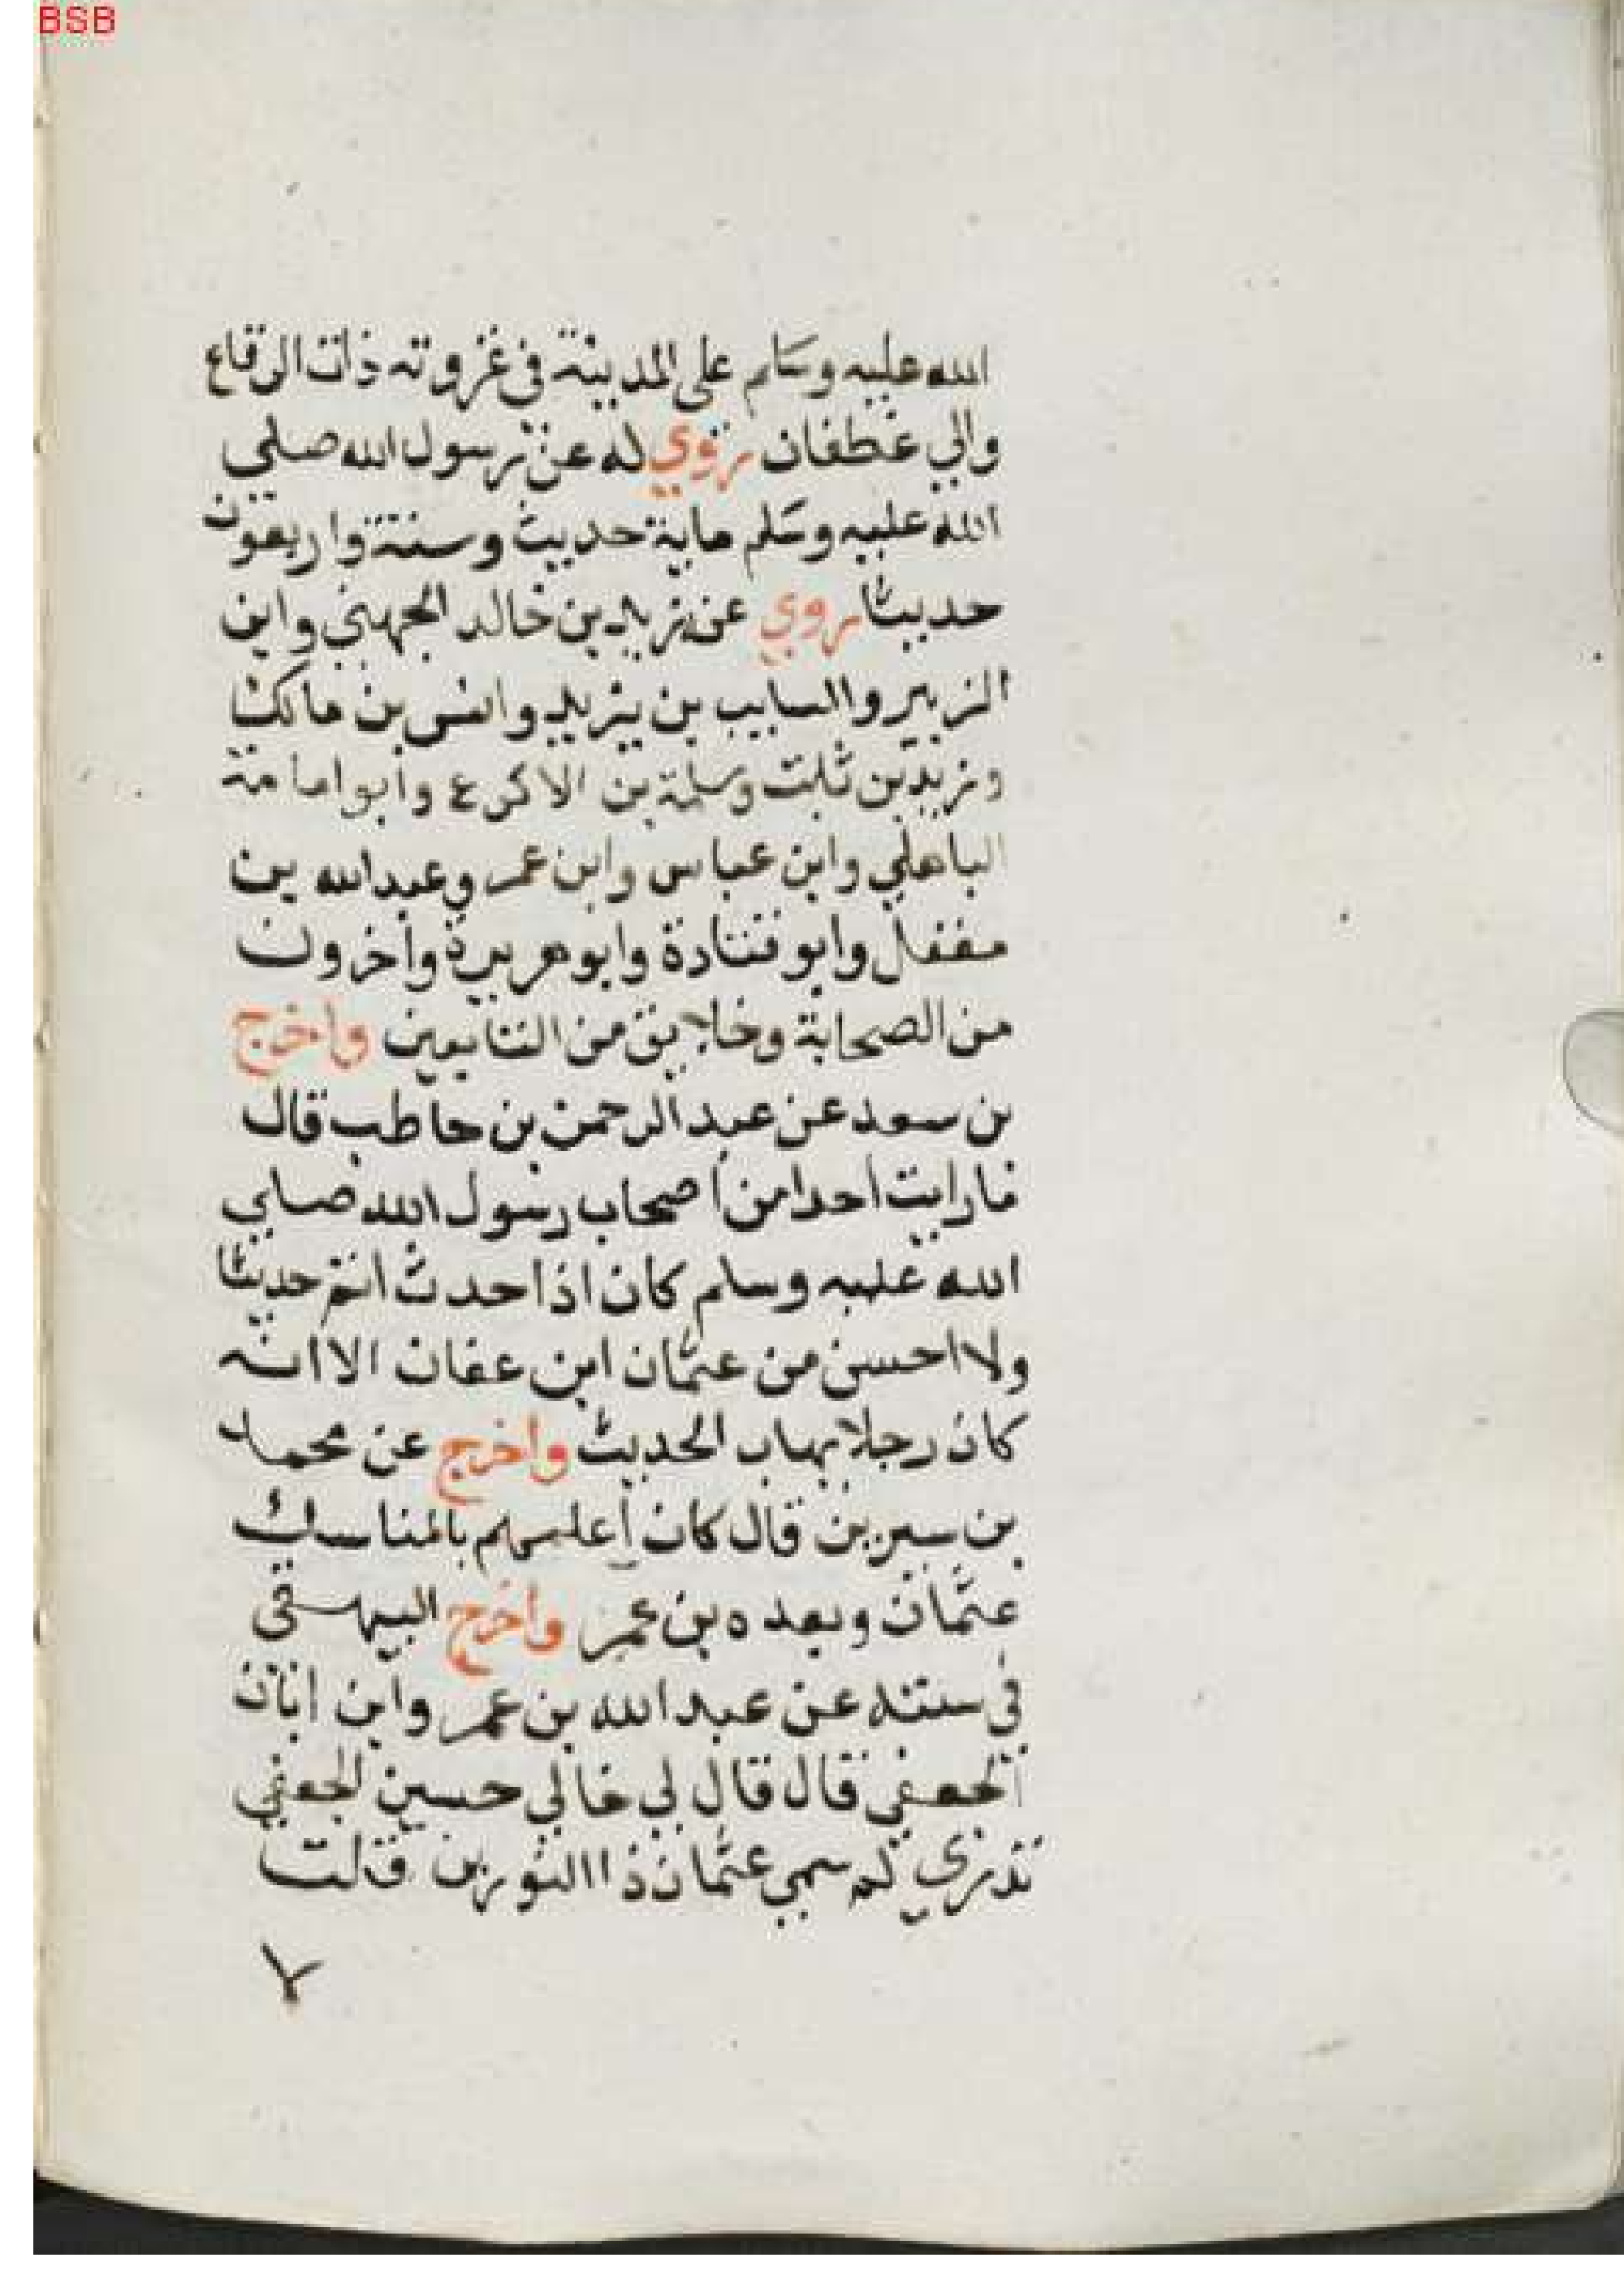 BSB
الله عليه وسلم على المدينة في غزوته ذات الرقاع
والي غطفان روي له عن رسول الله صلي
الله عليه وسلم ماية حديث وستة واربعون
حديثا روي عنه زيد بن خالد الجهني وابن
الزبير والسايب بن يزيد وانس بن مالك
وزيد بن ثابت وسلمة بن الاكرع وابو امامة
الباهلي وابن عباس وابن عمر وعبد الله بن
مغفل وابو قتادة وابو هريرة واخرون
من الصحابة وخلايق من التابعين واخرج
بن سعد عن عبد الرحمن بن حاطب قال
مارايت احدا من اصحاب رسول الله صلي
الله عليه وسلم كان اذا حدث اتم حديثا
ولا احسن من عثمان ابن عفان الا انه
كان رجلا يهاب الحديث واخرج عن محمد
بن سيرين قال كان اعلمهم بالمناسك
عثمان وبعده بن عمر واخرج البيهقي
في سننه عن عبد الله بن عمر وابن ابان
الجعفي قال قال لي خالي حسين الجعفي
تدري لم سمي عثمان ذا النورين قلت
لا